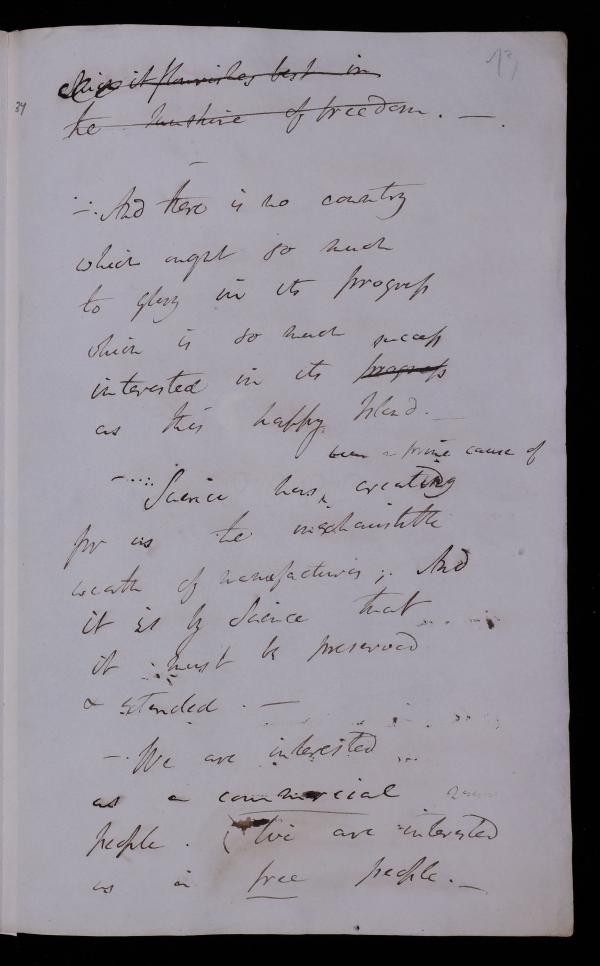 it flourishes best in
the sunshine of freedom. —
—
— And there is no country
which ought so much
to glory in its progress
which is so much success
interested in its progress
as this happy Island. —
been a prime cause of
— Science has creating
for us the inexhaustible
wealth of manufactures; And
it is by Science that
it must be preserved
& extended. —
— We are interested
as a commercial
people. We are interested
as a free people. —